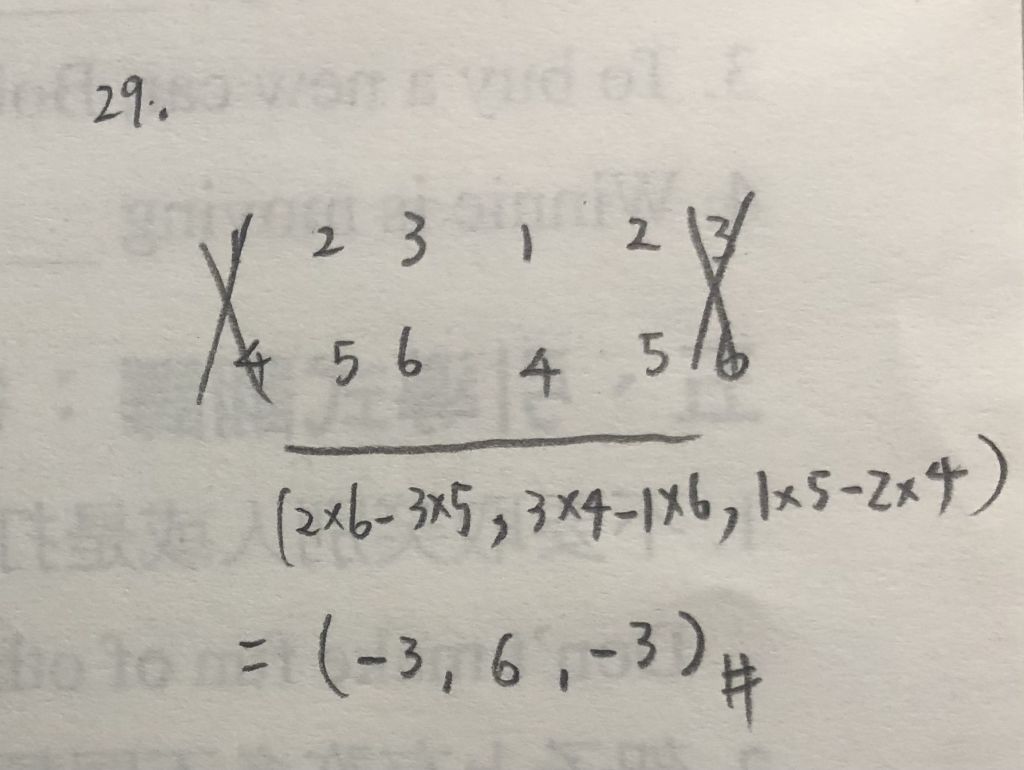 29.
1 2 3 1 2 3
4 5 6 4 5 6
(2×6-3×5, 3×4-1×6, 1×5-2×4)
= (-3, 6, -3)#